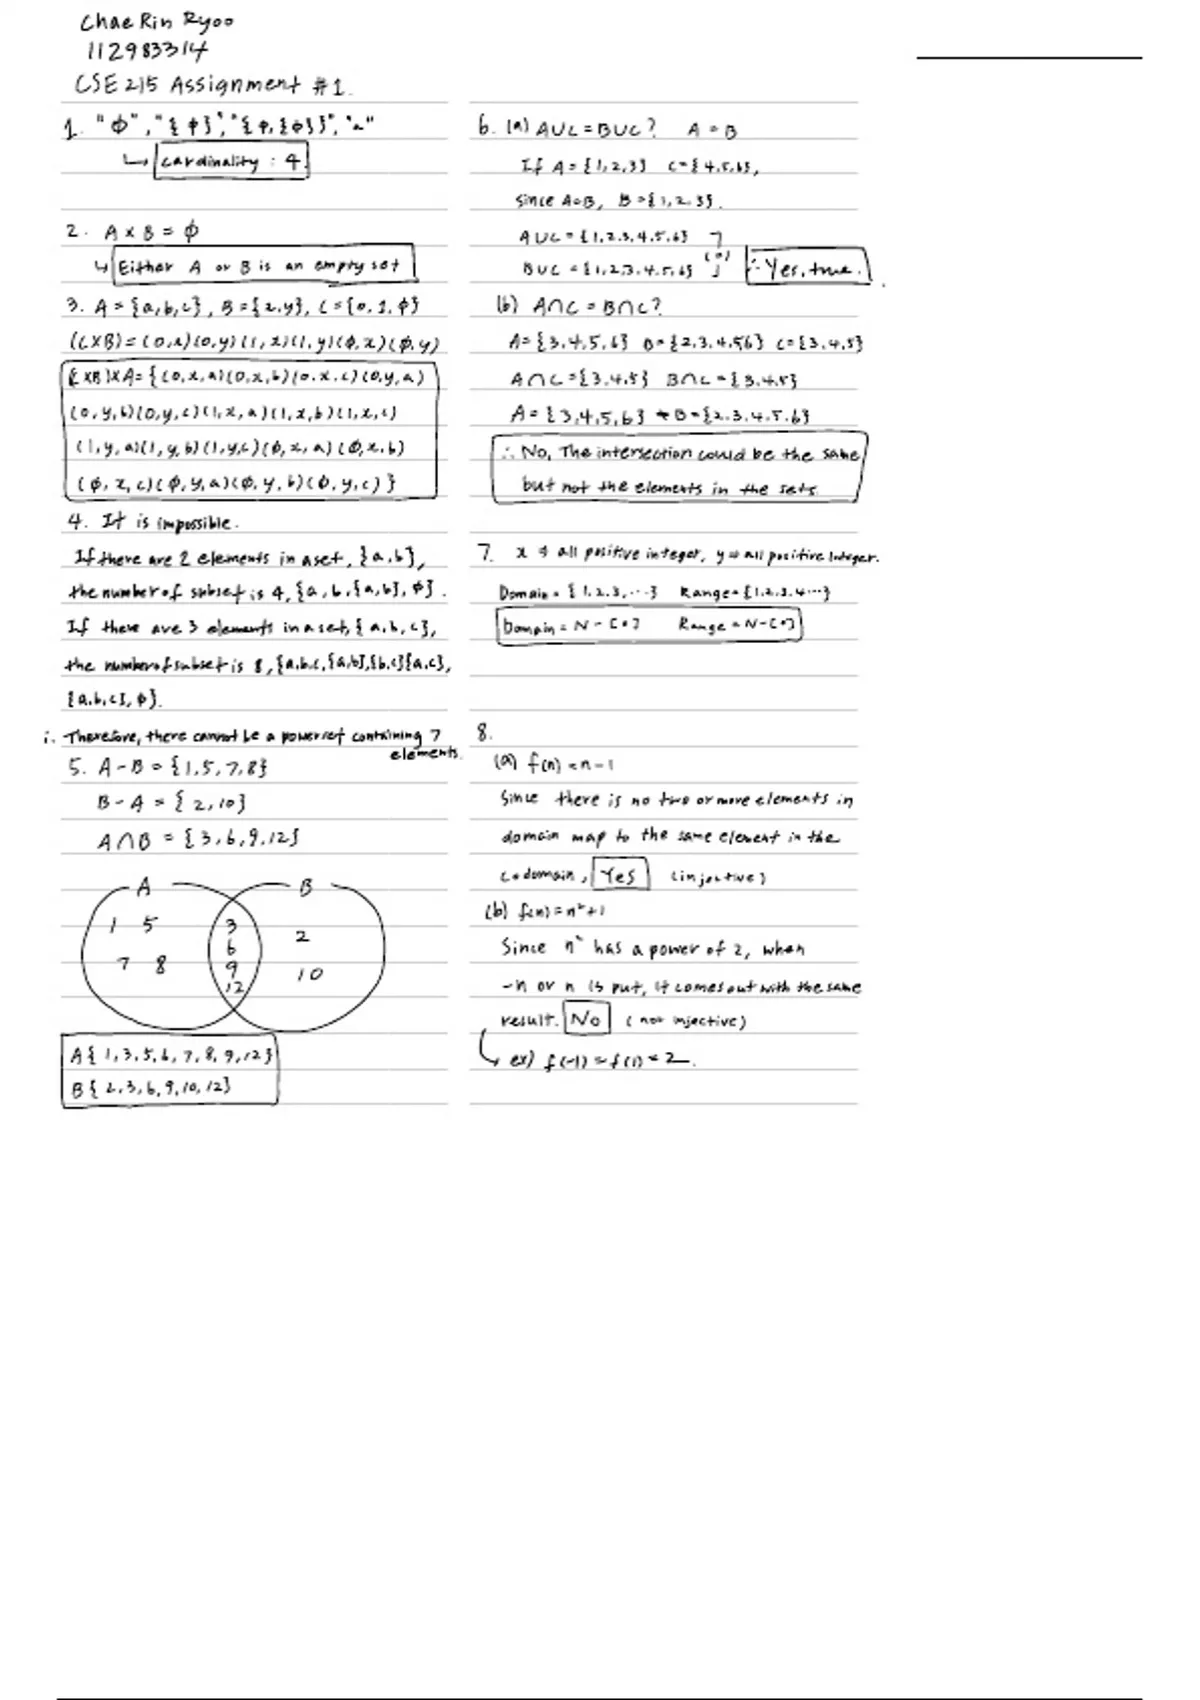 Chae Rin Ryoo
112983314
CSE 215 Assignment #1.
1. "φ", "{φ}", "{φ,{φ}}", "a"
↳ cardinality : 4
2. A × B = φ
↳ Either A or B is an empty set
3. A = {a,b,c}, B = {x,y}, C = {0,1,φ}
(C×B) = (0,x)(0,y)(1,x)(1,y)(φ,x)(φ,y)
(C×B)×A = {(0,x,a)(0,x,b)(0,x,c)(0,y,a)
(0,y,b)(0,y,c)(1,x,a)(1,x,b)(1,x,c)
(1,y,a)(1,y,b)(1,y,c)(φ,x,a)(φ,x,b)
(φ,x,c)(φ,y,a)(φ,y,b)(φ,y,c)}
4. It is impossible.
If there are 2 elements in a set, {a,b},
the number of subset is 4, {a,b,{a,b},φ}.
If there are 3 elements in a set, {a,b,c},
the number of subset is 8, {a,b,c,{a,b},{b,c}{a,c},
{a,b,c},φ}.
∴ Therefore, there cannot be a powerset containing 7
elements.
5. A-B = {1,5,7,8}
B-A = {2,10}
A∩B = {3,6,9,12}
A B
1 5 3 2
7 8 6 10
9
12
A{1,3,5,6,7,8,9,12}
B{2,3,6,9,10,12}
6. (a) A∪C = B∪C? A = B
If A = {1,2,3} C = {4,5,6},
since A=B, B={1,2,3}.
A∪C = {1,2,3,4,5,6}
B∪C = {1,2,3,4,5,6} (=) ∴ Yes, true.
(b) A∩C = B∩C?
A={3,4,5,6} B={2,3,4,5,6} C={3,4,5}
A∩C={3,4,5} B∩C={3,4,5}
A={3,4,5,6} ≠ B={2,3,4,5,6}
∴ No, The intersection could be the same
but not the elements in the sets.
7. x ⇒ all positive integer, y ⇒ all positive integer.
Domain = {1,2,3,...} Range={1,2,3,4...}
Domain = N-{0} Range = N-{0}
8.
(a) f(n) = n-1
Since there is no two or more elements in
domain map to the same element in the
codomain, Yes (injective)
(b) f(n) = n²+1
Since n² has a power of 2, when
-n or n is put, it comes out with the same
result. No (not injective)
↳ ex) f(-1) = f(1) = 2.